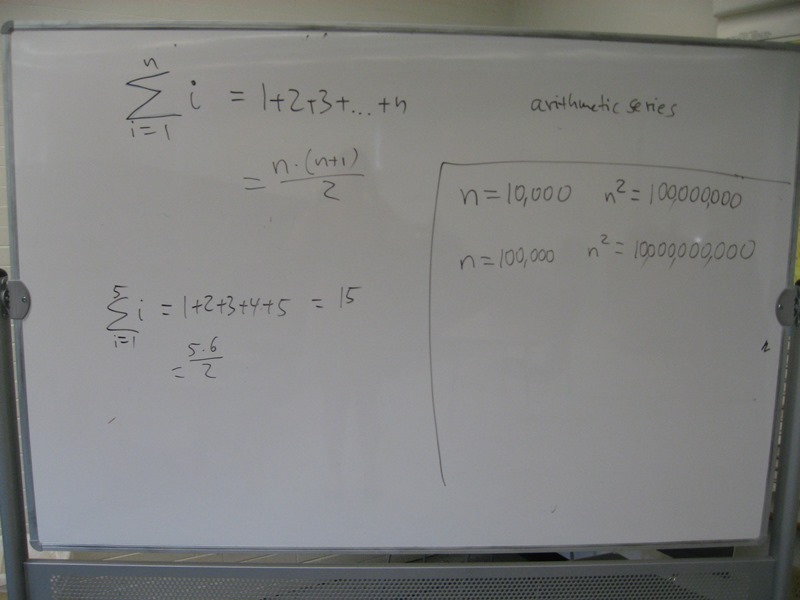 n
∑ i = 1+2+3+...+n
i=1
= n·(n+1)
2
arithmetic series
n=10,000 n² = 100,000,000
n=100,000 n² = 10,000,000,000
5
∑ i = 1+2+3+4+5 = 15
i=1
= 5·6
2